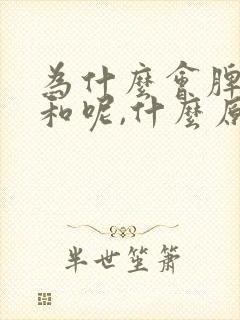 為什麼會脾
和呢,什麼原
半世笙簫